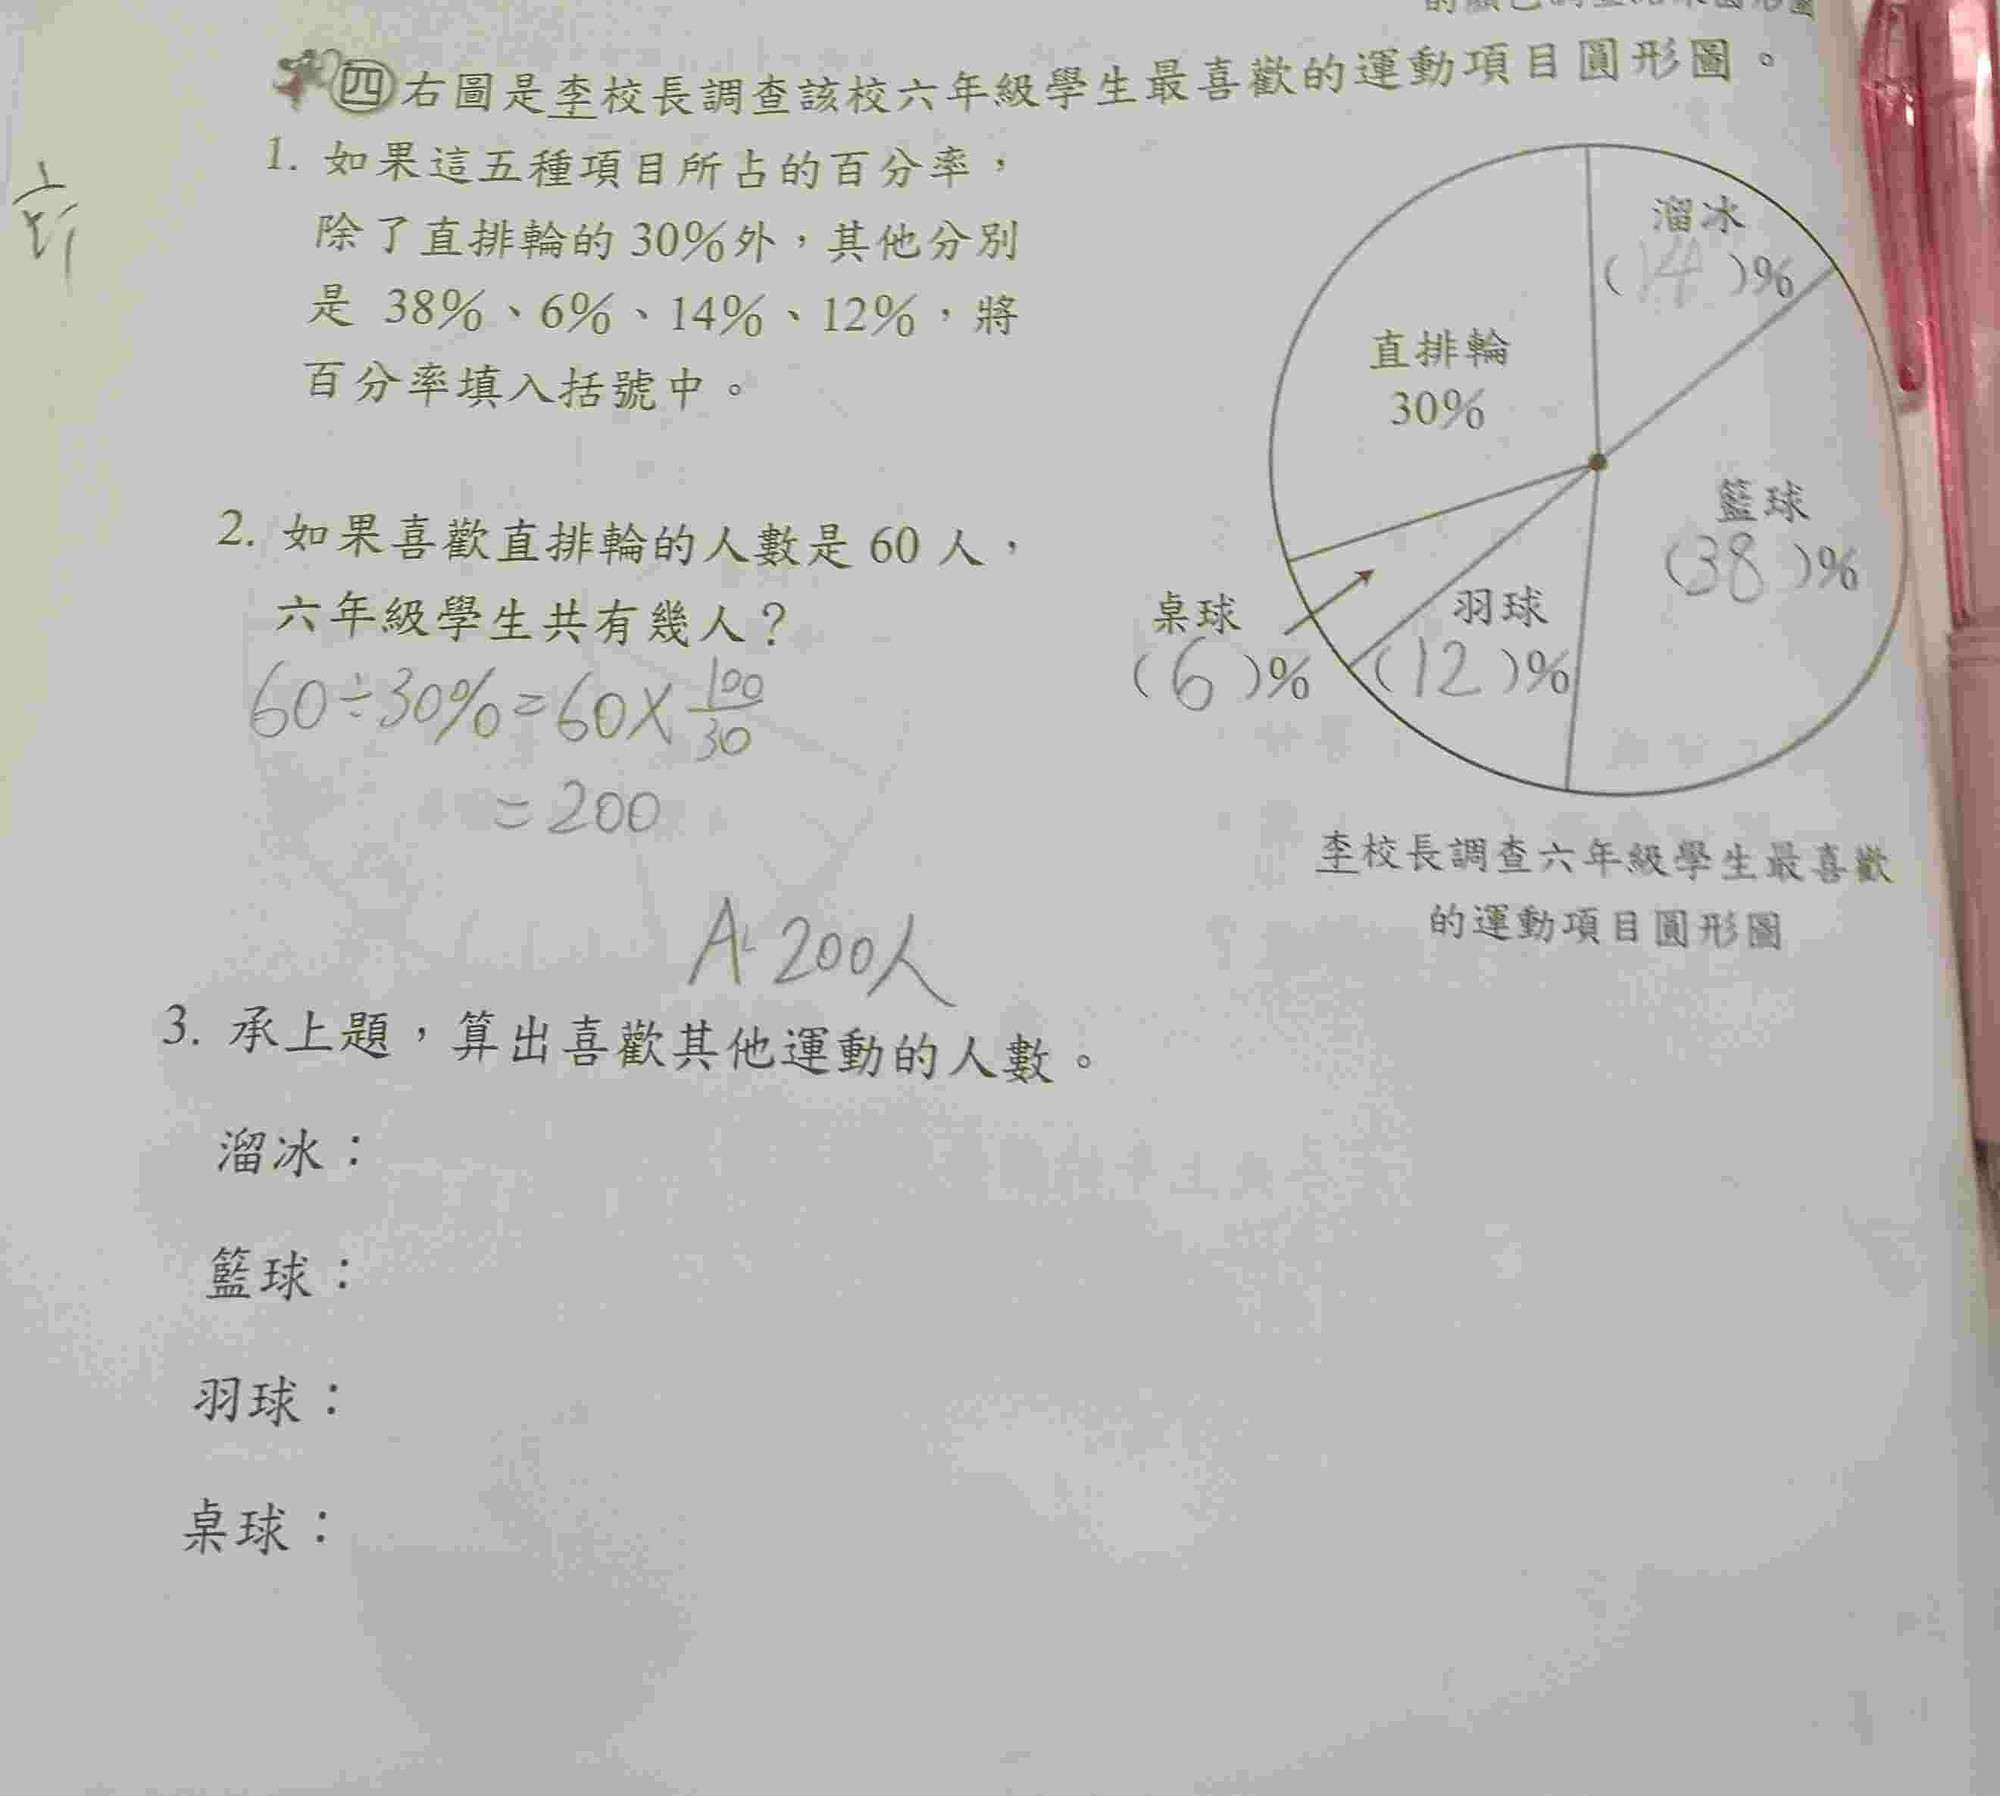 四 右圖是李校長調查該校六年級學生最喜歡的運動項目圓形圖。
1. 如果這五種項目所占的百分率，
除了直排輪的30%外，其他分別
是 38%、6%、14%、12%，將
百分率填入括號中。
溜冰
(14)%
直排輪
30%
籃球
(38)%
桌球
(6)%
羽球
(12)%
李校長調查六年級學生最喜歡
的運動項目圓形圖
2. 如果喜歡直排輪的人數是 60 人，
六年級學生共有幾人？
60÷30%=60×100/30
=200
A: 200人
3. 承上題，算出喜歡其他運動的人數。
溜冰：
籃球：
羽球：
桌球：